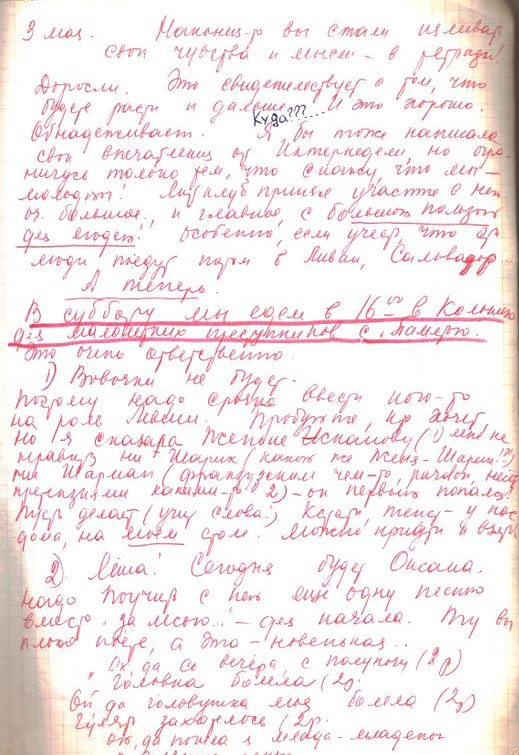 3 мая. Наконец-то вы стали изливать
свои чувства и мысли - в тетради!
Доросли. Это свидетельствует о том, что
будете расти и дальше. И это хорошо.
Куда???...
Обнадеживает. Я бы тоже написала
свои впечатления от Интернедели, но огра-
ничусь только тем, что скажу, что мы -
молодцы! Литклуб принял участие в ней
оч. большое, и главное, с большой пользой
для людей! Особенно, если учесть, что эр
люди поедут потом в Ливан, Сальвадор...
А теперь.
В субботу мы едем в 16 00 в Колонию
для малолетних преступников с "Ламером".
Это очень ответственно.
1) Вовочки не будет.
Поэтому надо срочно ввести кого-то
на роль Пьеси. Пробуйте, кто хочет.
Но я сказала Женьке Испанову (1) мне не
нравится ни Шарик (какой же Женя - Шарик!?)
ни Шарман (французским чем-то,
претензиями каким-то 2) - он первый попался.
Пусть делает (учит слова!) Кстати, текст - у нас
дома, на моем столе. Можно придти и взять
2) Лёша! Сегодня будет Оксана.
Надо поучить с ней еще одну песню
вместо "За лесом..." - для начала. Ту вы
плохо поете, а эта - новенькая...
Ох да со вечера, с полуночи (2 р)
Головка болела (2 р.
Ой да головушка моя болела (2 р)
Гуляет захарьюс (2 р.
Ой, да пошла я млада-младенька